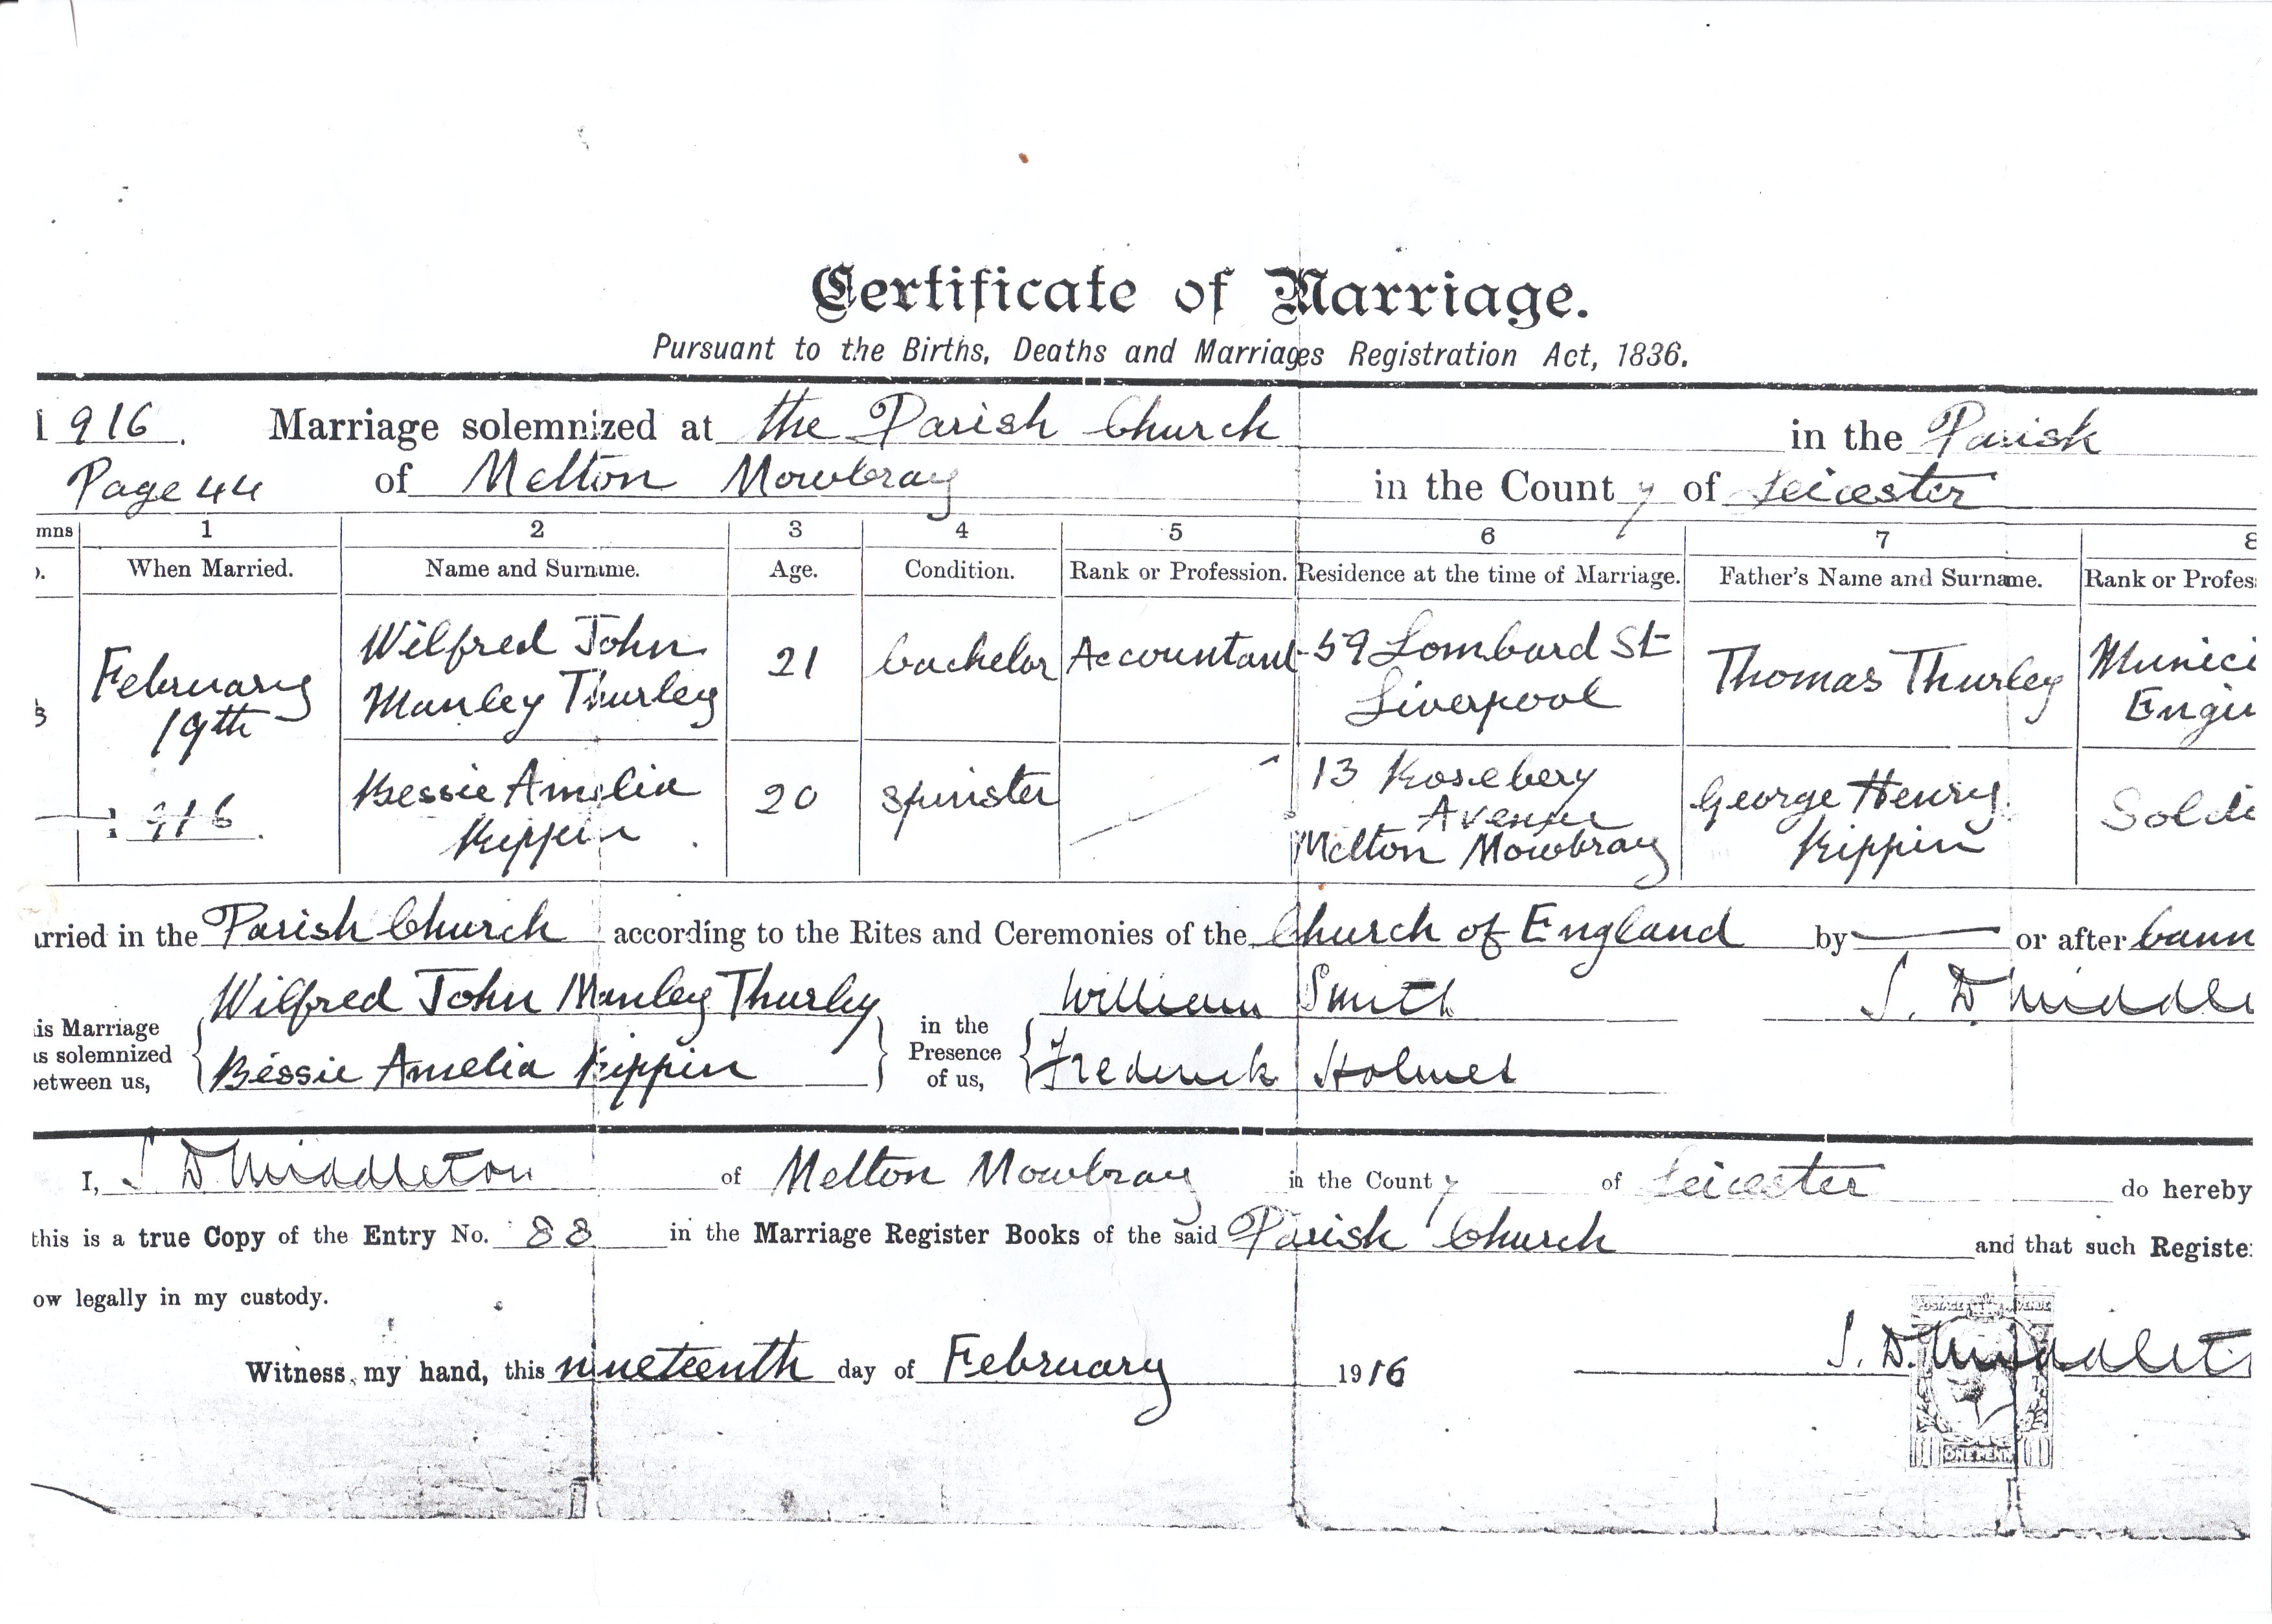 Certificate of Marriage.
Pursuant to the Births, Deaths and Marriages Registration Act, 1836.
1916. Marriage solemnized at the Parish Church in the Parish
Page 44 of Melton Mowbray in the County of Leicester
mns 1 2 3 4 5 6 7 8
When Married. Name and Surname. Age. Condition. Rank or Profession. Residence at the time of Marriage. Father's Name and Surname. Rank or Profes
February 19th 1916. Wilfred John Manley Thurley 21 bachelor Accountant 59 Lombard St Liverpool Thomas Thurley Munici Engin
Bessie Amelia Kippin 20 spinster 13 Rosebery Avenue Melton Mowbray George Henry Kippin Soldi
arried in the Parish Church according to the Rites and Ceremonies of the Church of England by — or after bann
is Marriage as solemnized between us, Wilfred John Manley Thurley in the Presence of us, William Smith S. D. Middle
Bessie Amelia Kippin Frederick Holmes
I, S D Middleton of Melton Mowbray in the County of Leicester do hereby
this is a true Copy of the Entry No. 88 in the Marriage Register Books of the said Parish Church and that such Registe
ow legally in my custody.
POSTAGE REVENUE
Witness my hand, this nineteenth day of February 1916 S. D. Middlet
ONE PENNY